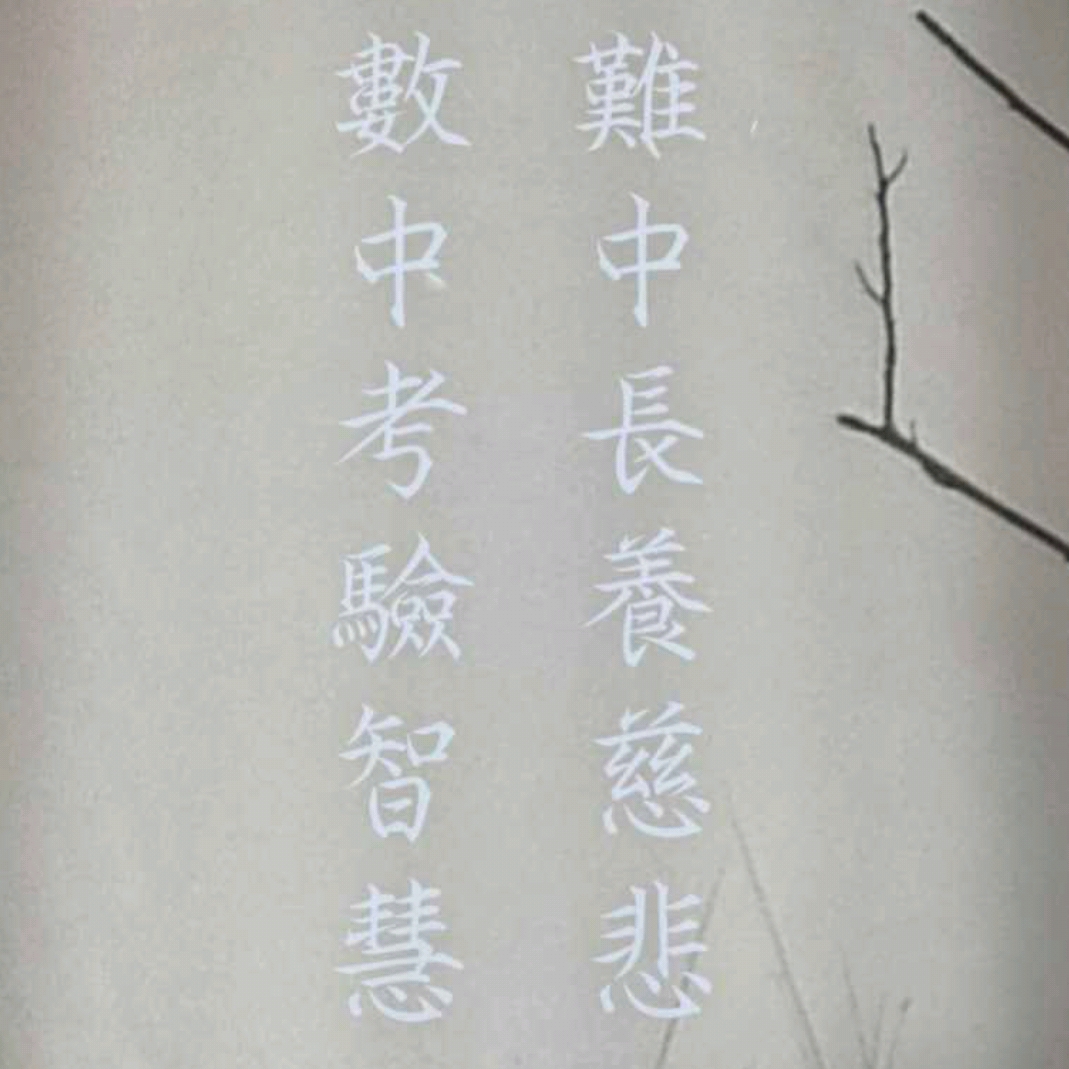 難中長養慈悲
數中考驗智慧